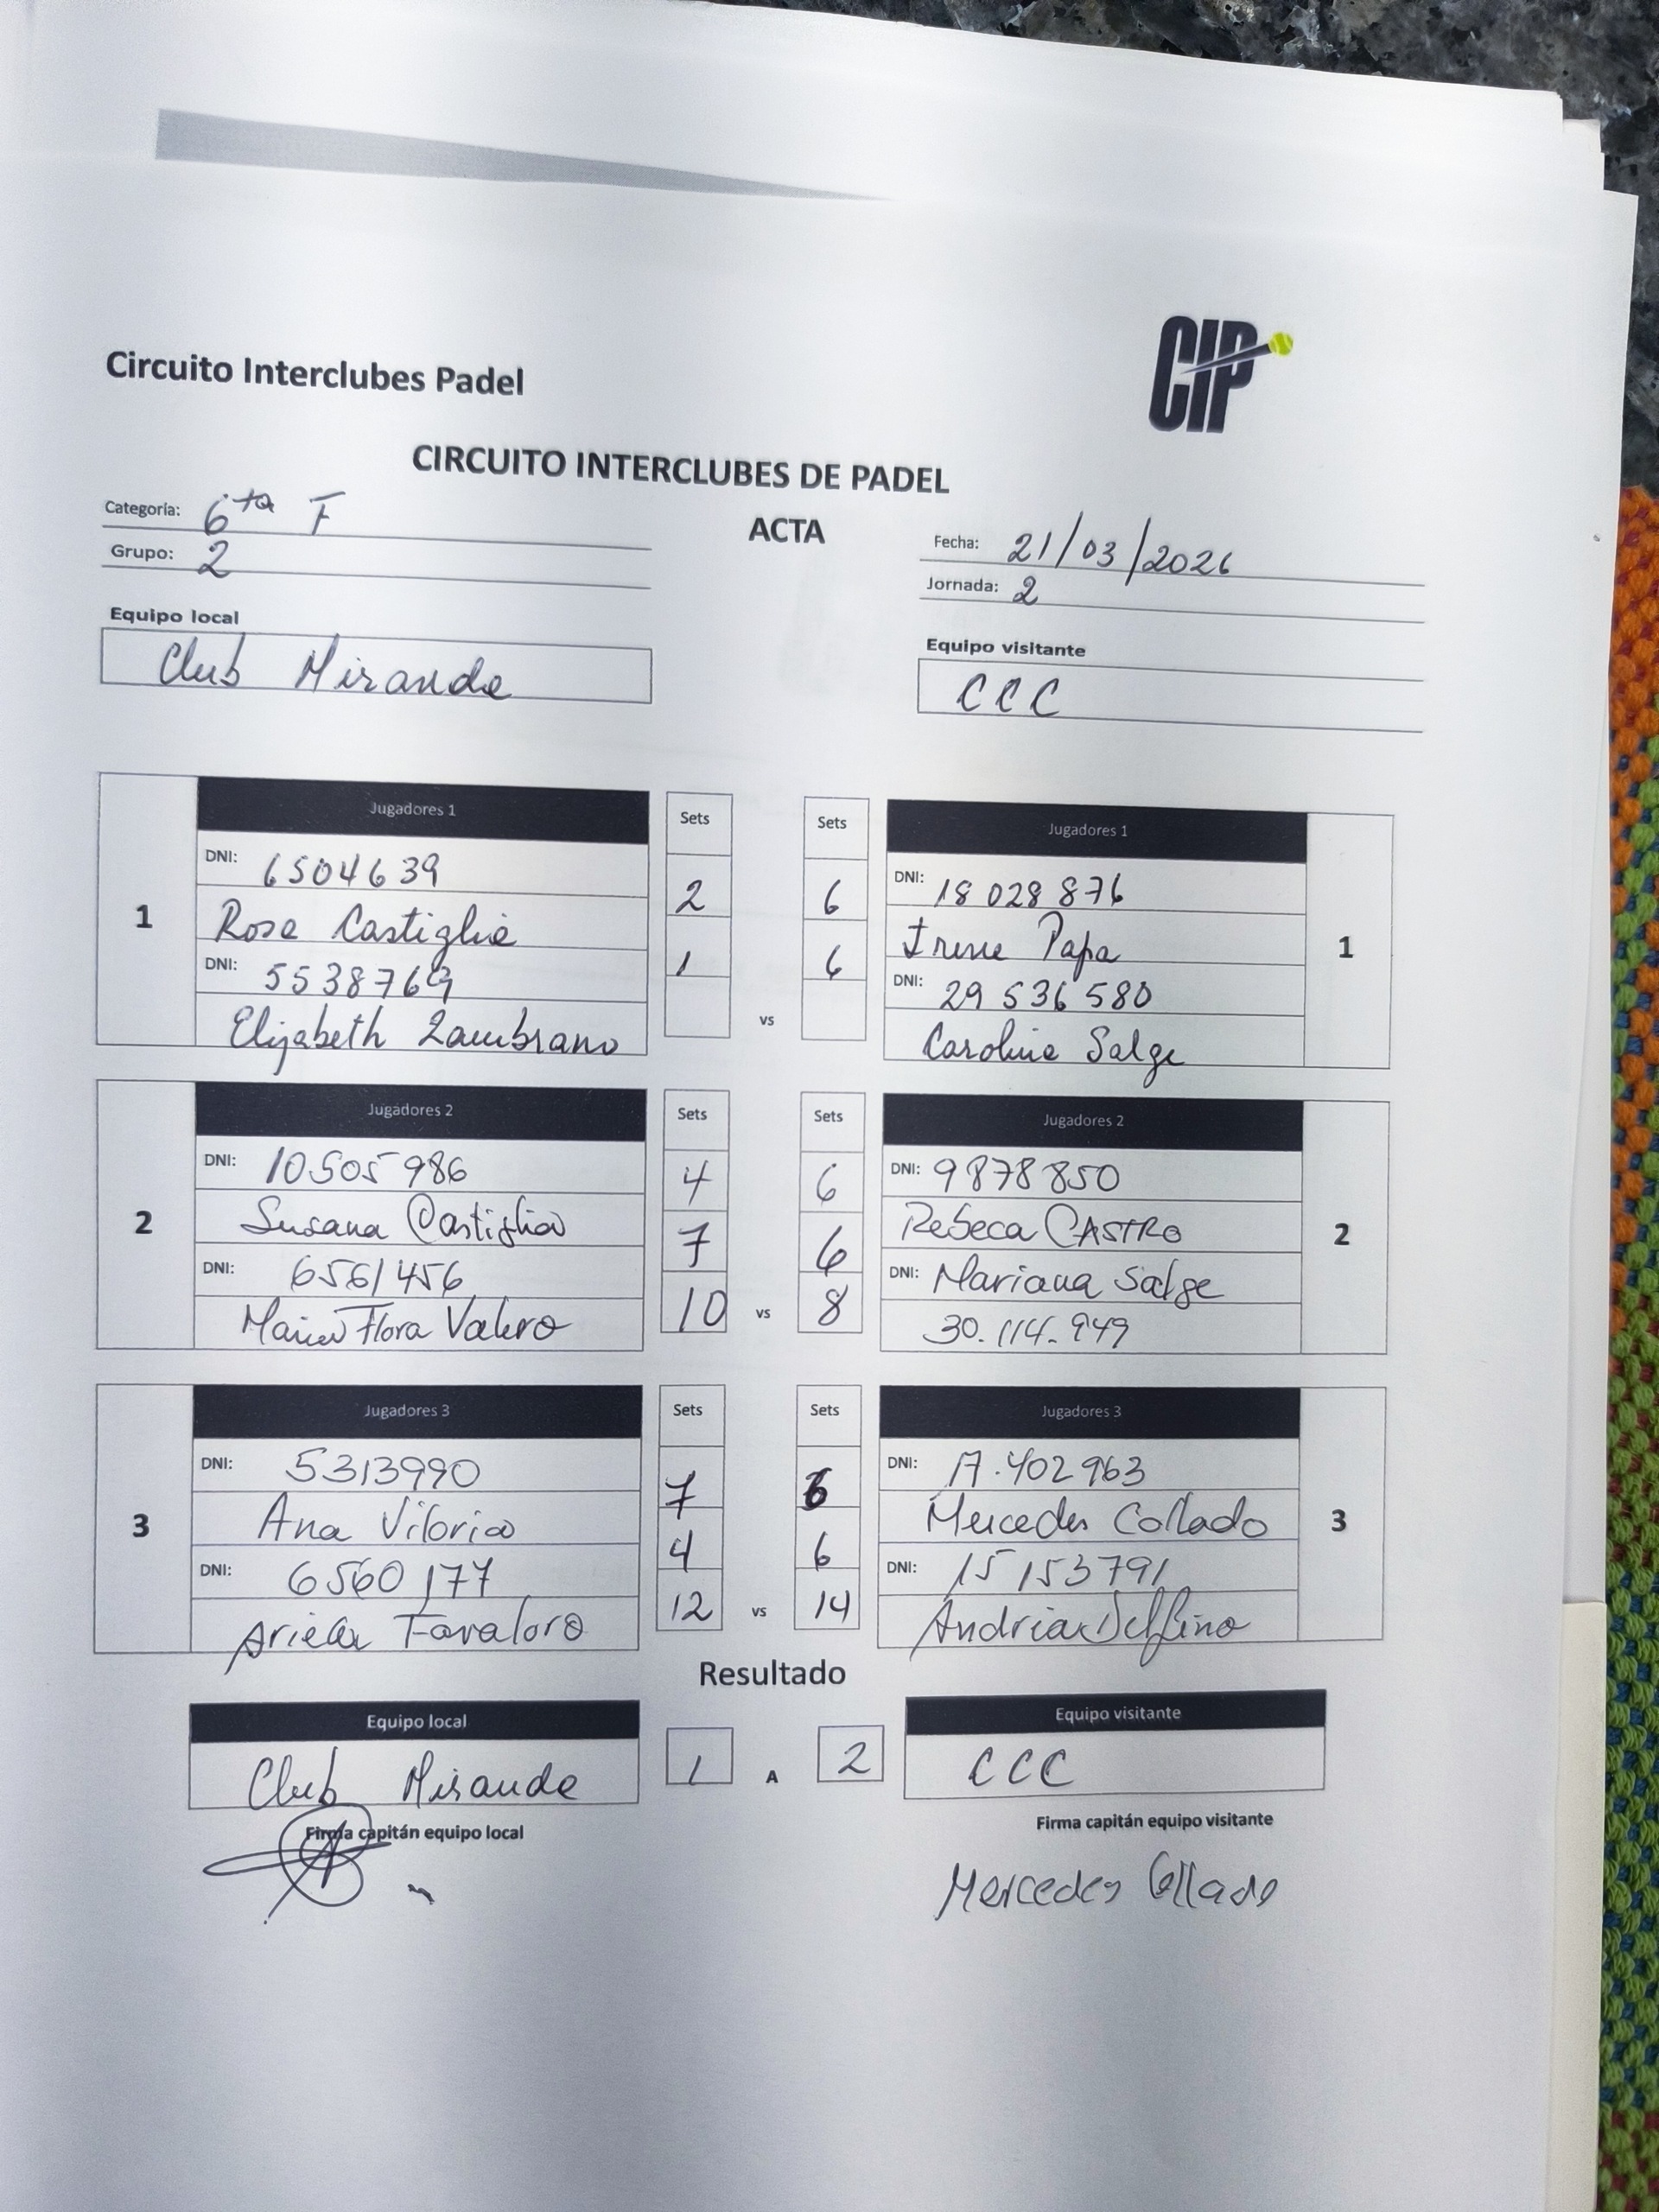 Circuito Interclubes Padel
CIP
CIRCUITO INTERCLUBES DE PADEL
ACTA
Categoría: 6ta F
Grupo: 2
Fecha: 21/03/2026
Jornada: 2
Equipo local
Club Miranda
Equipo visitante
CCC
1
Jugadores 1
DNI: 6504639
Rosa Castiglia
DNI: 5538769
Elizabeth Zambrano
Sets
2
1
vs
Sets
6
6
Jugadores 1
DNI: 18 028 876
Irene Papa
DNI: 29 536 580
Carolina Salge
1
2
Jugadores 2
DNI: 10505986
Susana Castiglia
DNI: 6561456
María Flora Valero
Sets
4
7
10
vs
Sets
6
6
8
Jugadores 2
DNI: 9878850
Rebeca CASTRO
DNI: Mariana Salge
30.114.949
2
3
Jugadores 3
DNI: 5313990
Ana Viloria
DNI: 6560177
Ariela Favaloro
Sets
7
4
12
vs
Sets
6
14
Jugadores 3
DNI: 17.402963
Mercedes Collado
DNI: 15153791
Andria Delfino
3
Resultado
Equipo local
Club Miranda
1 A 2
Equipo visitante
CCC
Firma capitán equipo local
Firma capitán equipo visitante
Mercedes Collado